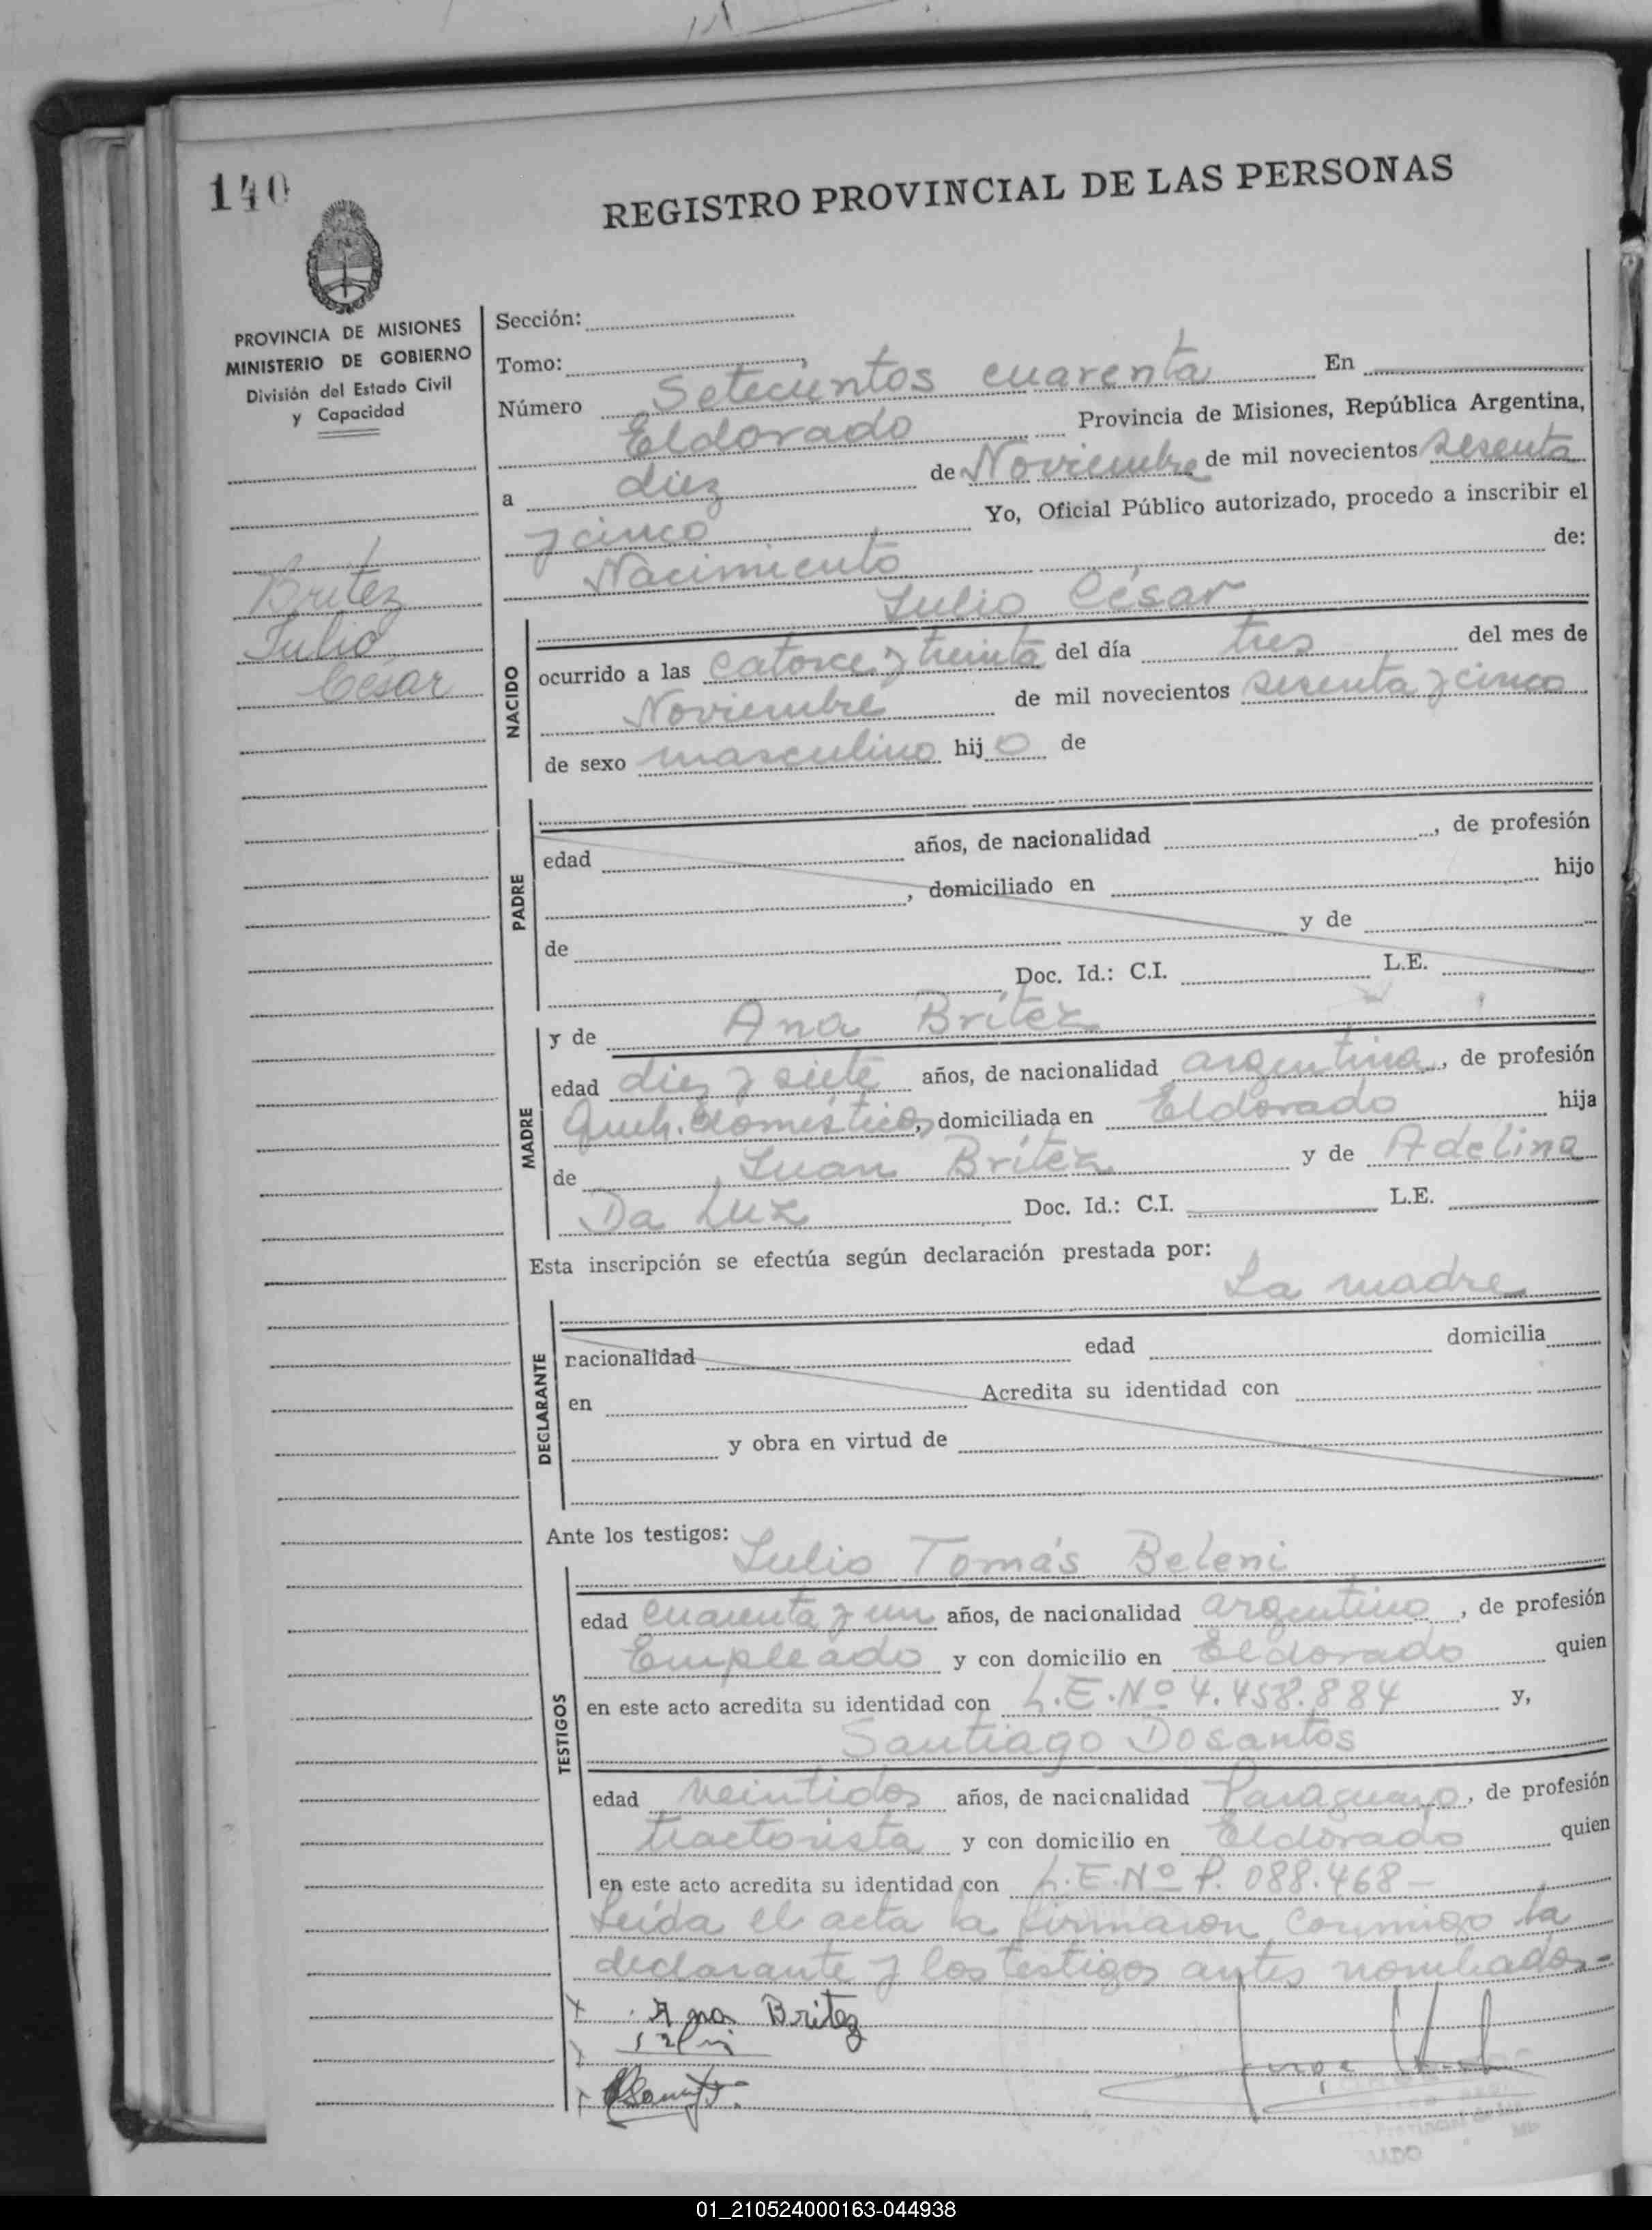 140
REGISTRO PROVINCIAL DE LAS PERSONAS
PROVINCIA DE MISIONES
MINISTERIO DE GOBIERNO
División del Estado Civil
y Capacidad
Britez
Julio
César
Sección:
Tomo:
Número Setecientos cuarenta En
Eldorado Provincia de Misiones, República Argentina,
a diez de Noviembre de mil novecientos sesenta
y cinco Yo, Oficial Público autorizado, procedo a inscribir el
Nacimiento de:
Julio César
NACIDO
ocurrido a las catorce y treinta del día tres del mes de
Noviembre de mil novecientos sesenta y cinco
de sexo masculino hijo de
PADRE
edad años, de nacionalidad , de profesión
, domiciliado en hijo
de y de
Doc. Id.: C.I. L.E.
MADRE
y de Ana Britez
edad diez y siete años, de nacionalidad argentina, de profesión
Queh. Domésticos, domiciliada en Eldorado hija
de Juan Britez y de Adelina
Da Luz Doc. Id.: C.I. L.E.
Esta inscripción se efectúa según declaración prestada por:
La madre
DECLARANTE
nacionalidad edad domicilia
en Acredita su identidad con
y obra en virtud de
Ante los testigos:
Julio Tomás Beleni
TESTIGOS
edad cuarenta y un años, de nacionalidad argentino, de profesión
Empleado y con domicilio en Eldorado quien
en este acto acredita su identidad con L.E.Nº 4.458.884 y,
Santiago Dosantos
edad veintidos años, de nacionalidad Paraguayo, de profesión
tractorista y con domicilio en Eldorado quien
en este acto acredita su identidad con L.E.Nº P. 088.468-
Leída el acta la firmaron conmigo la
declarante y los testigos antes nombados-
Ana Britez
01_210524000163-044938